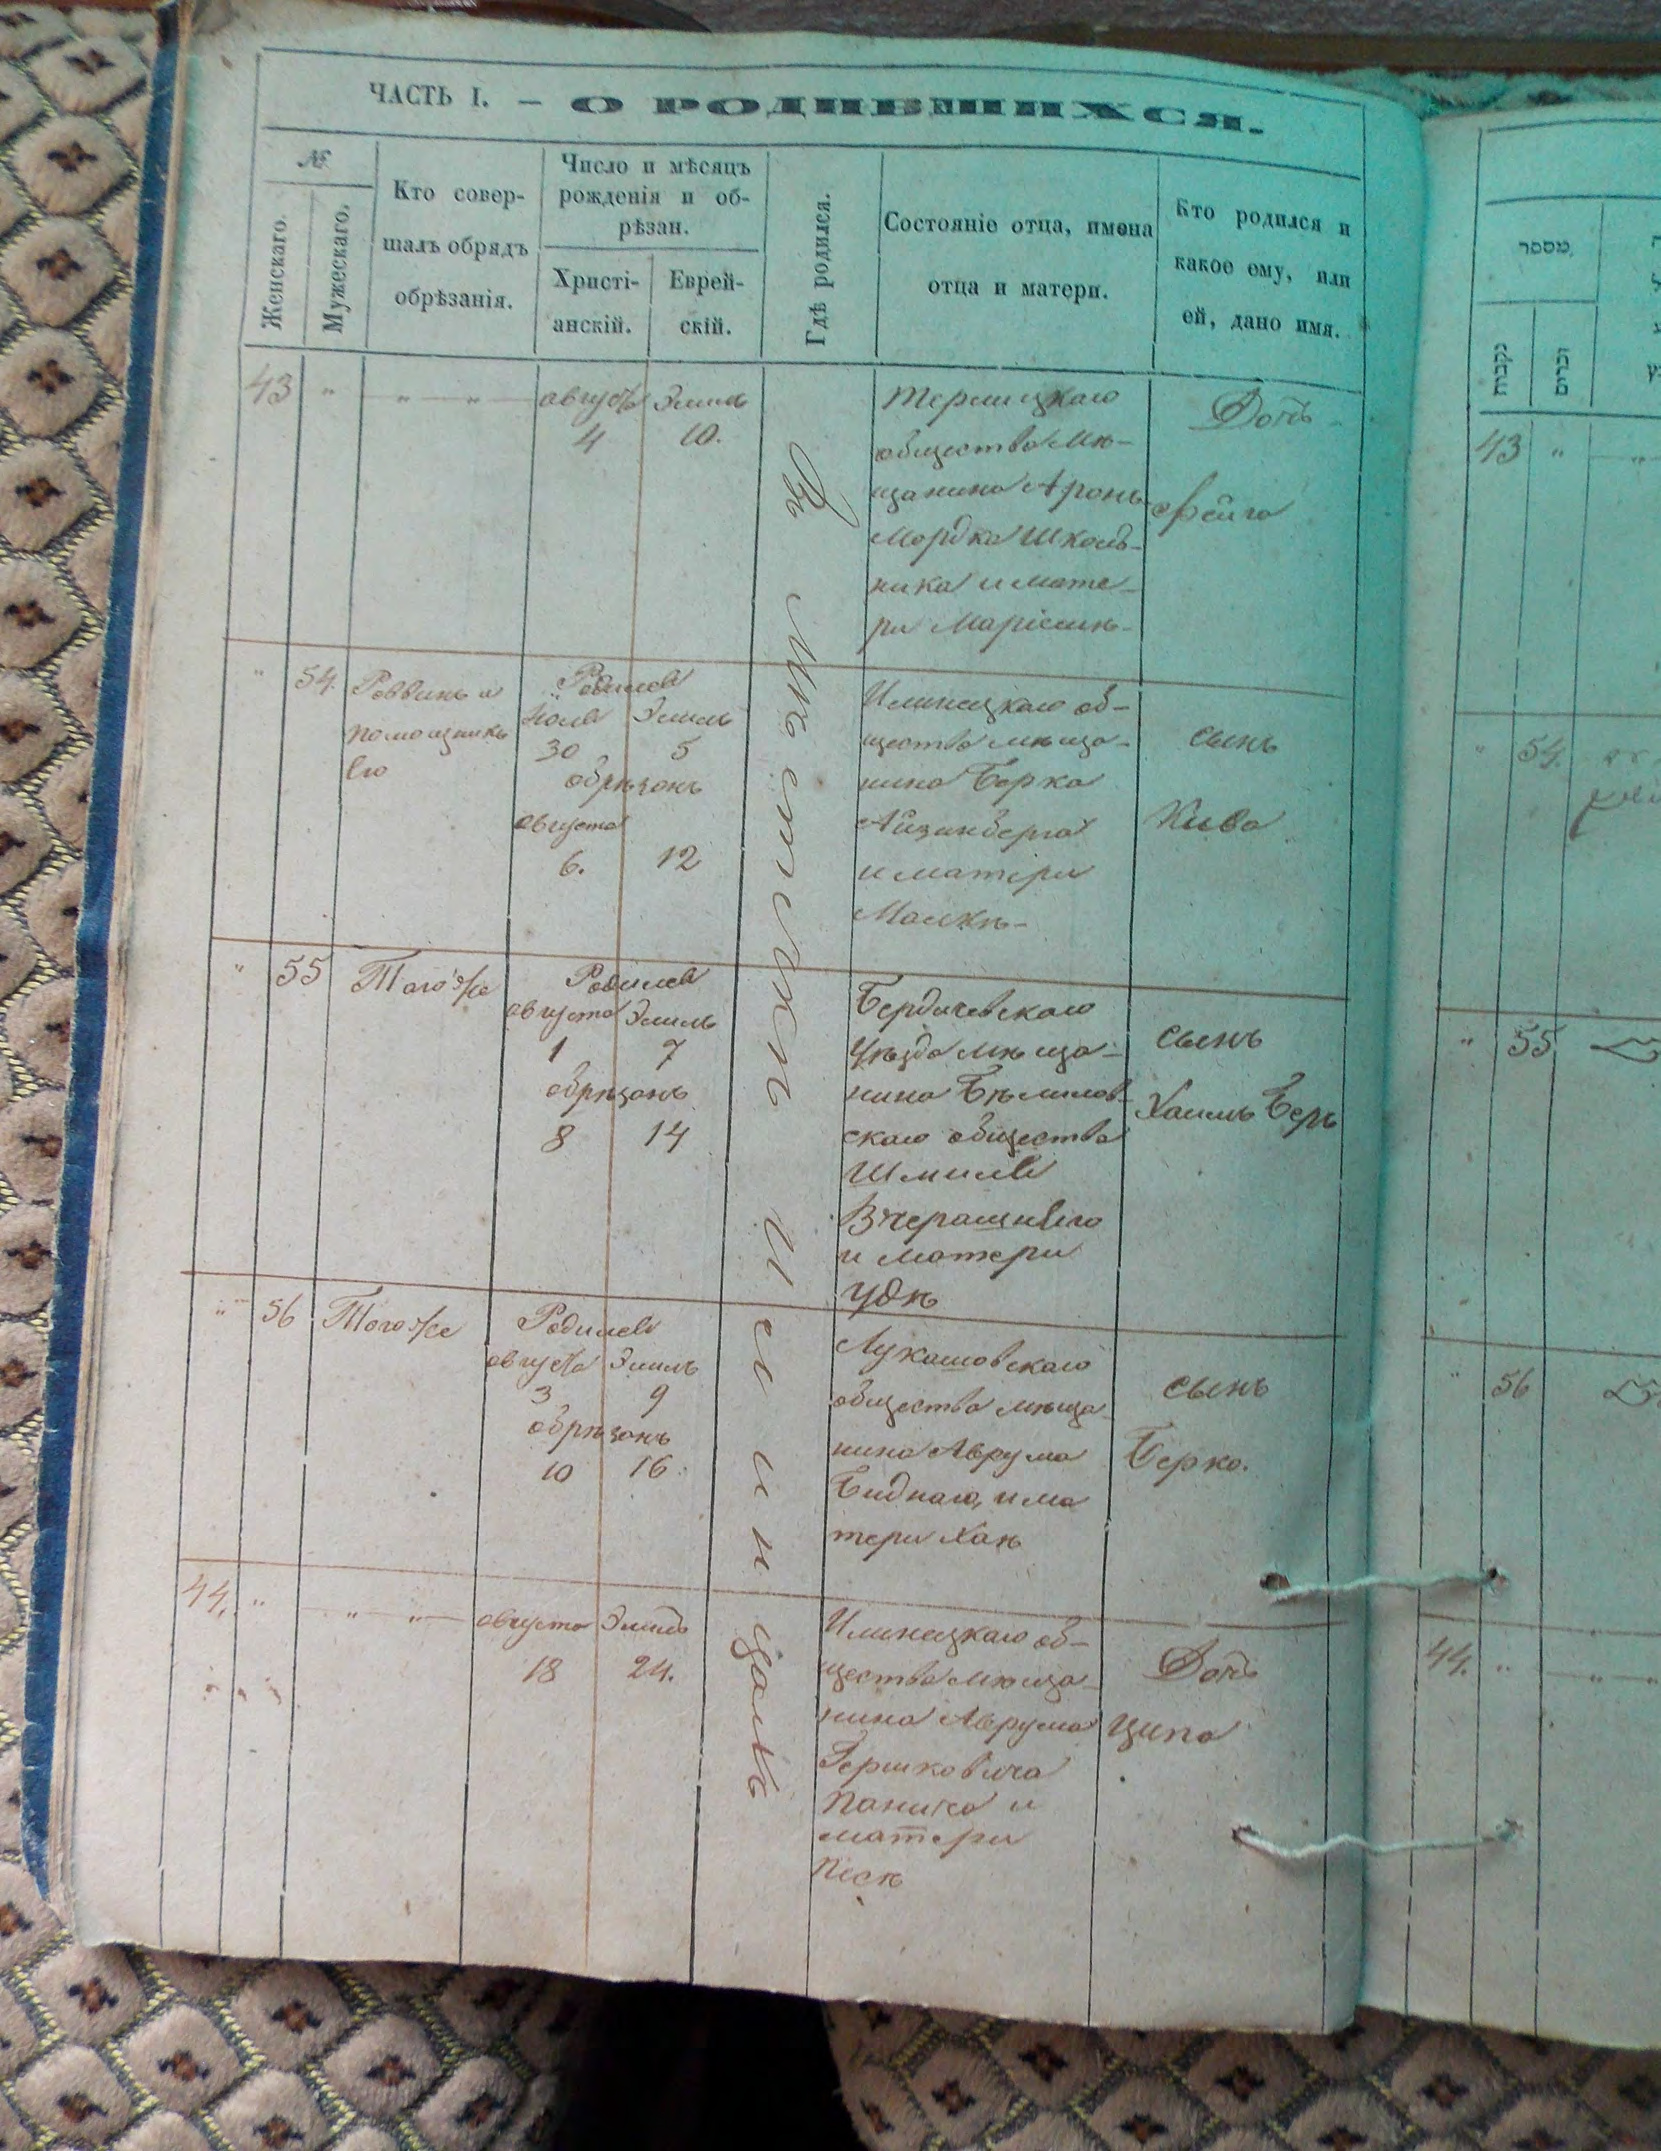 ЧАСТЬ I. — О РОДИВШИХСЯ.
№
Женскаго.
Мужескаго.
Кто совер-
шалъ обрядъ
обрѣзанія.
Число и мѣсяцъ
рожденія и об-
рѣзан.
Христі-
анскій.
Еврей-
скій.
Гдѣ родился.
Состояніе отца, имена
отца и матери.
Кто родился и
какое ему, или
ей, дано имя.
Въ Мѣстечкѣ Илинцахъ
43 " " " августа Элиль
4 10.
общества мѣ-
щанина Аронъ
Мордка Школь-
ника и мате-
ри
Дочь
Фейга
" 54. Раввинъ и
помощникъ
Его
Родился
Июля Элиль
30 5
обрѣзанъ
августа
6. 12
Илинецкаго об-
щества мѣща-
нина Берка
Айзинберга
и матери
Малкѣ
сынъ
Кива
" 55 Того же
Родился
августа Элиль
1 7
обрѣзанъ
8 14
Бердичевскаго
Уѣзда мѣща-
нина Бѣлилов-
скаго общества
Шмиля
Вчерашняго
и матери
Удѣ
сынъ
Хаимъ Беръ
" 56 Того же
Родился
августа Элиль
3 9
обрѣзанъ
10 16.
Лукашовскаго
общества мѣща-
нина Аврума
Биднаго, и ма
тери Ханѣ
сынъ
Берко.
44. " " " августа Элиль
18 24.
Илинецкаго об-
щества мѣща-
нина Аврума
Гершковича
Паника и
матери
Песѣ
Дочь
Ципа
מספר
נקבות
זכרים
43 "
" 54.
" 55
" 56
44. " " "